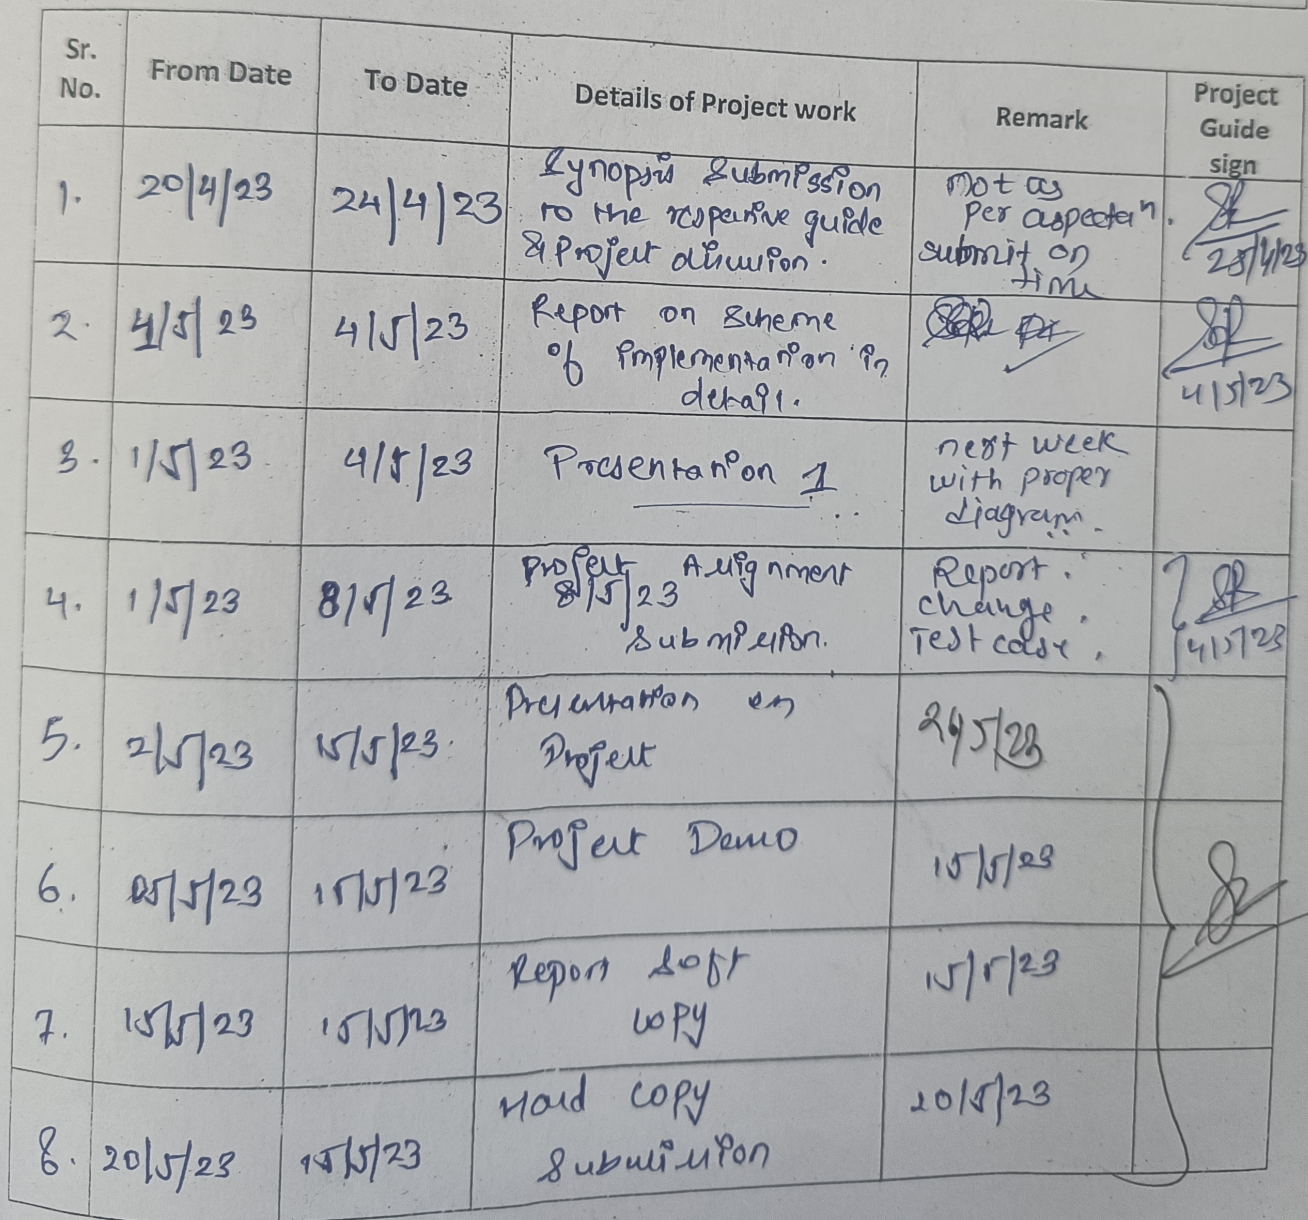 Sr. No. From Date To Date Details of Project work Remark Project Guide sign
1. 20/4/23 24/4/23 Synopsis Submission not as
to the respective guide per aspectan.
& Project discussion. submit on
time
28/4/23
2. 4/5/23 4/5/23 Report on scheme
of implementation in
detail.
4/5/23
3. 1/5/23 4/5/23 Presentation 1 next week
with proper
diagram.
4. 1/5/23 8/5/23 Project Assignment Report.
8/5/23 change.
Submission. Test case.
4/5/23
5. 2/5/23 15/5/23. Presentation on
Project
6. 05/5/23 15/5/23 Project Demo 15/5/23
7. 15/5/23 15/5/23 Report Soft 15/5/23
copy
8. 20/5/23 15/5/23 Hard copy 20/5/23
Submission